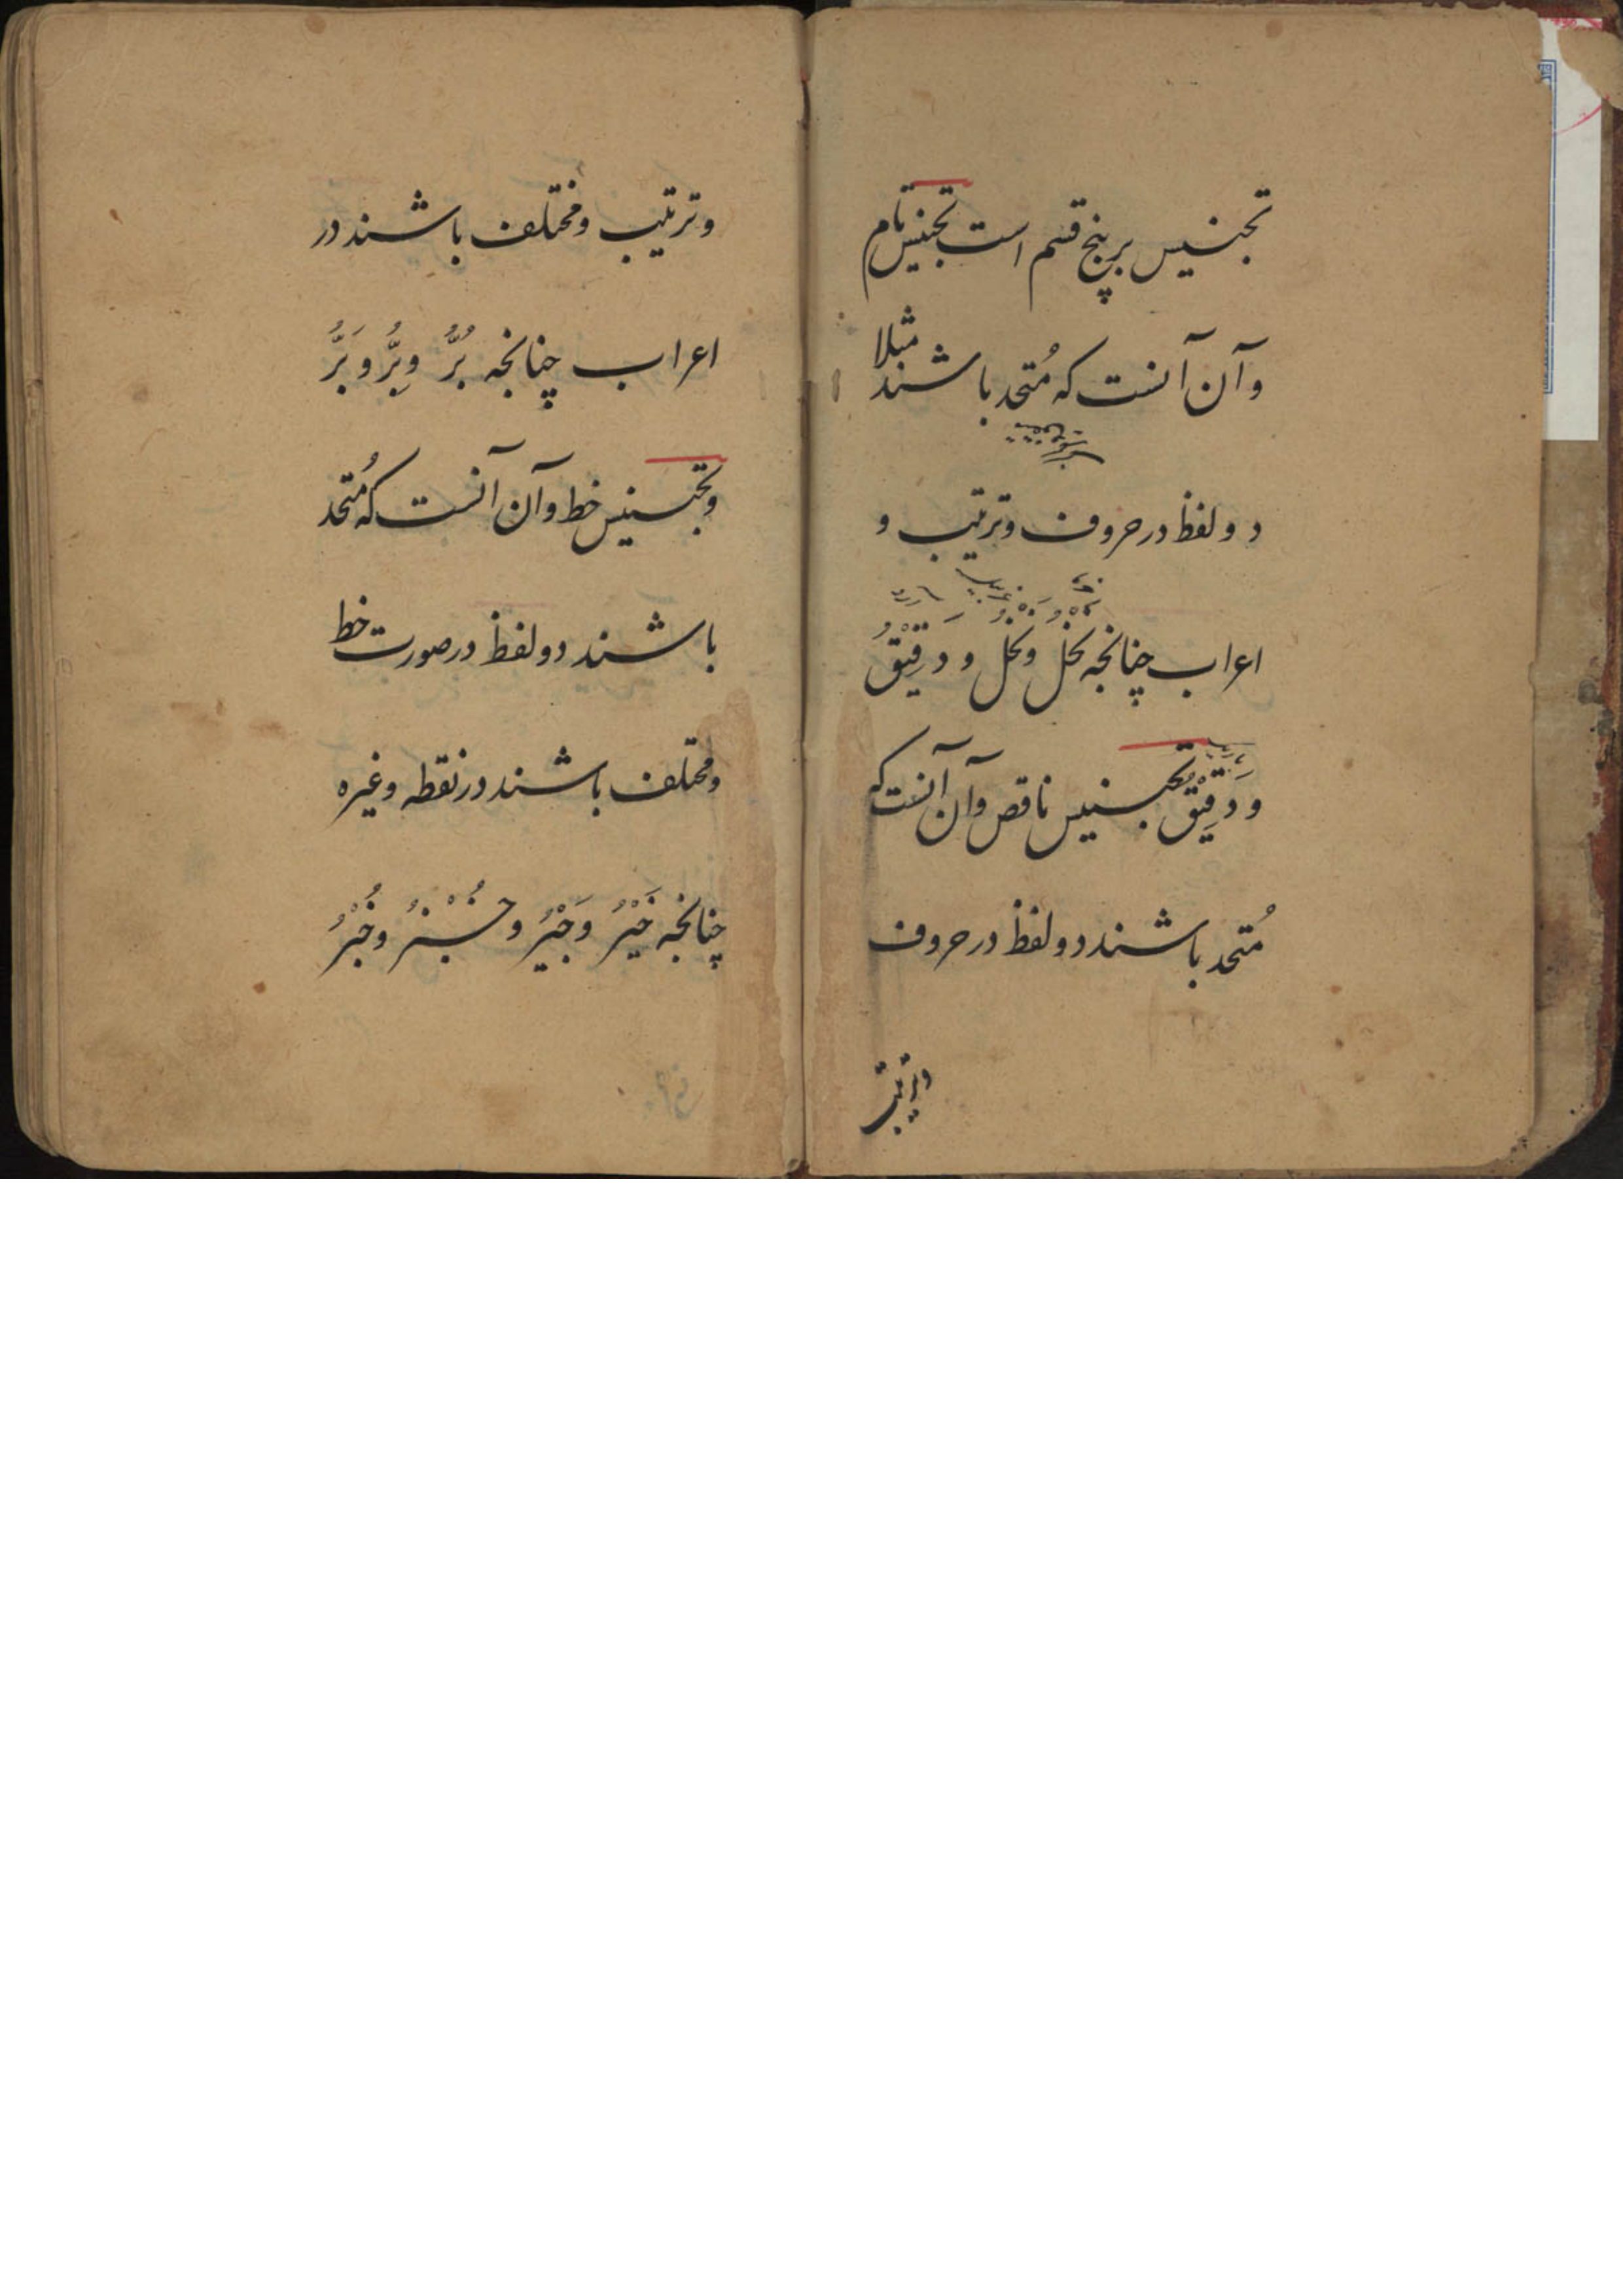 تجنیس بر پنج قسم است تجنیس تام
وآن آنست که مُتحد باشند مثلا
دو لفظ در حروف وترتیب و
اعراب چنانچه نخلٌ ونخلٌ و دَقِیْقٌ
و دَقِیْقٌ تجنیس ناقص وآن آنست که
مُتحد باشند دو لفظ در حروف
وترتیب
وترتیب ومختلف باشند در
اعراب چنانچه بُرٌّ وبِرٌّ وبَرٌّ
وتجنیس خط وآن آنست که مُتحد
باشند دو لفظ در صورت خط
ومختلف باشند در نقطه وغیره
چنانچه خَیْرٌ وَ وخُبْرٌ